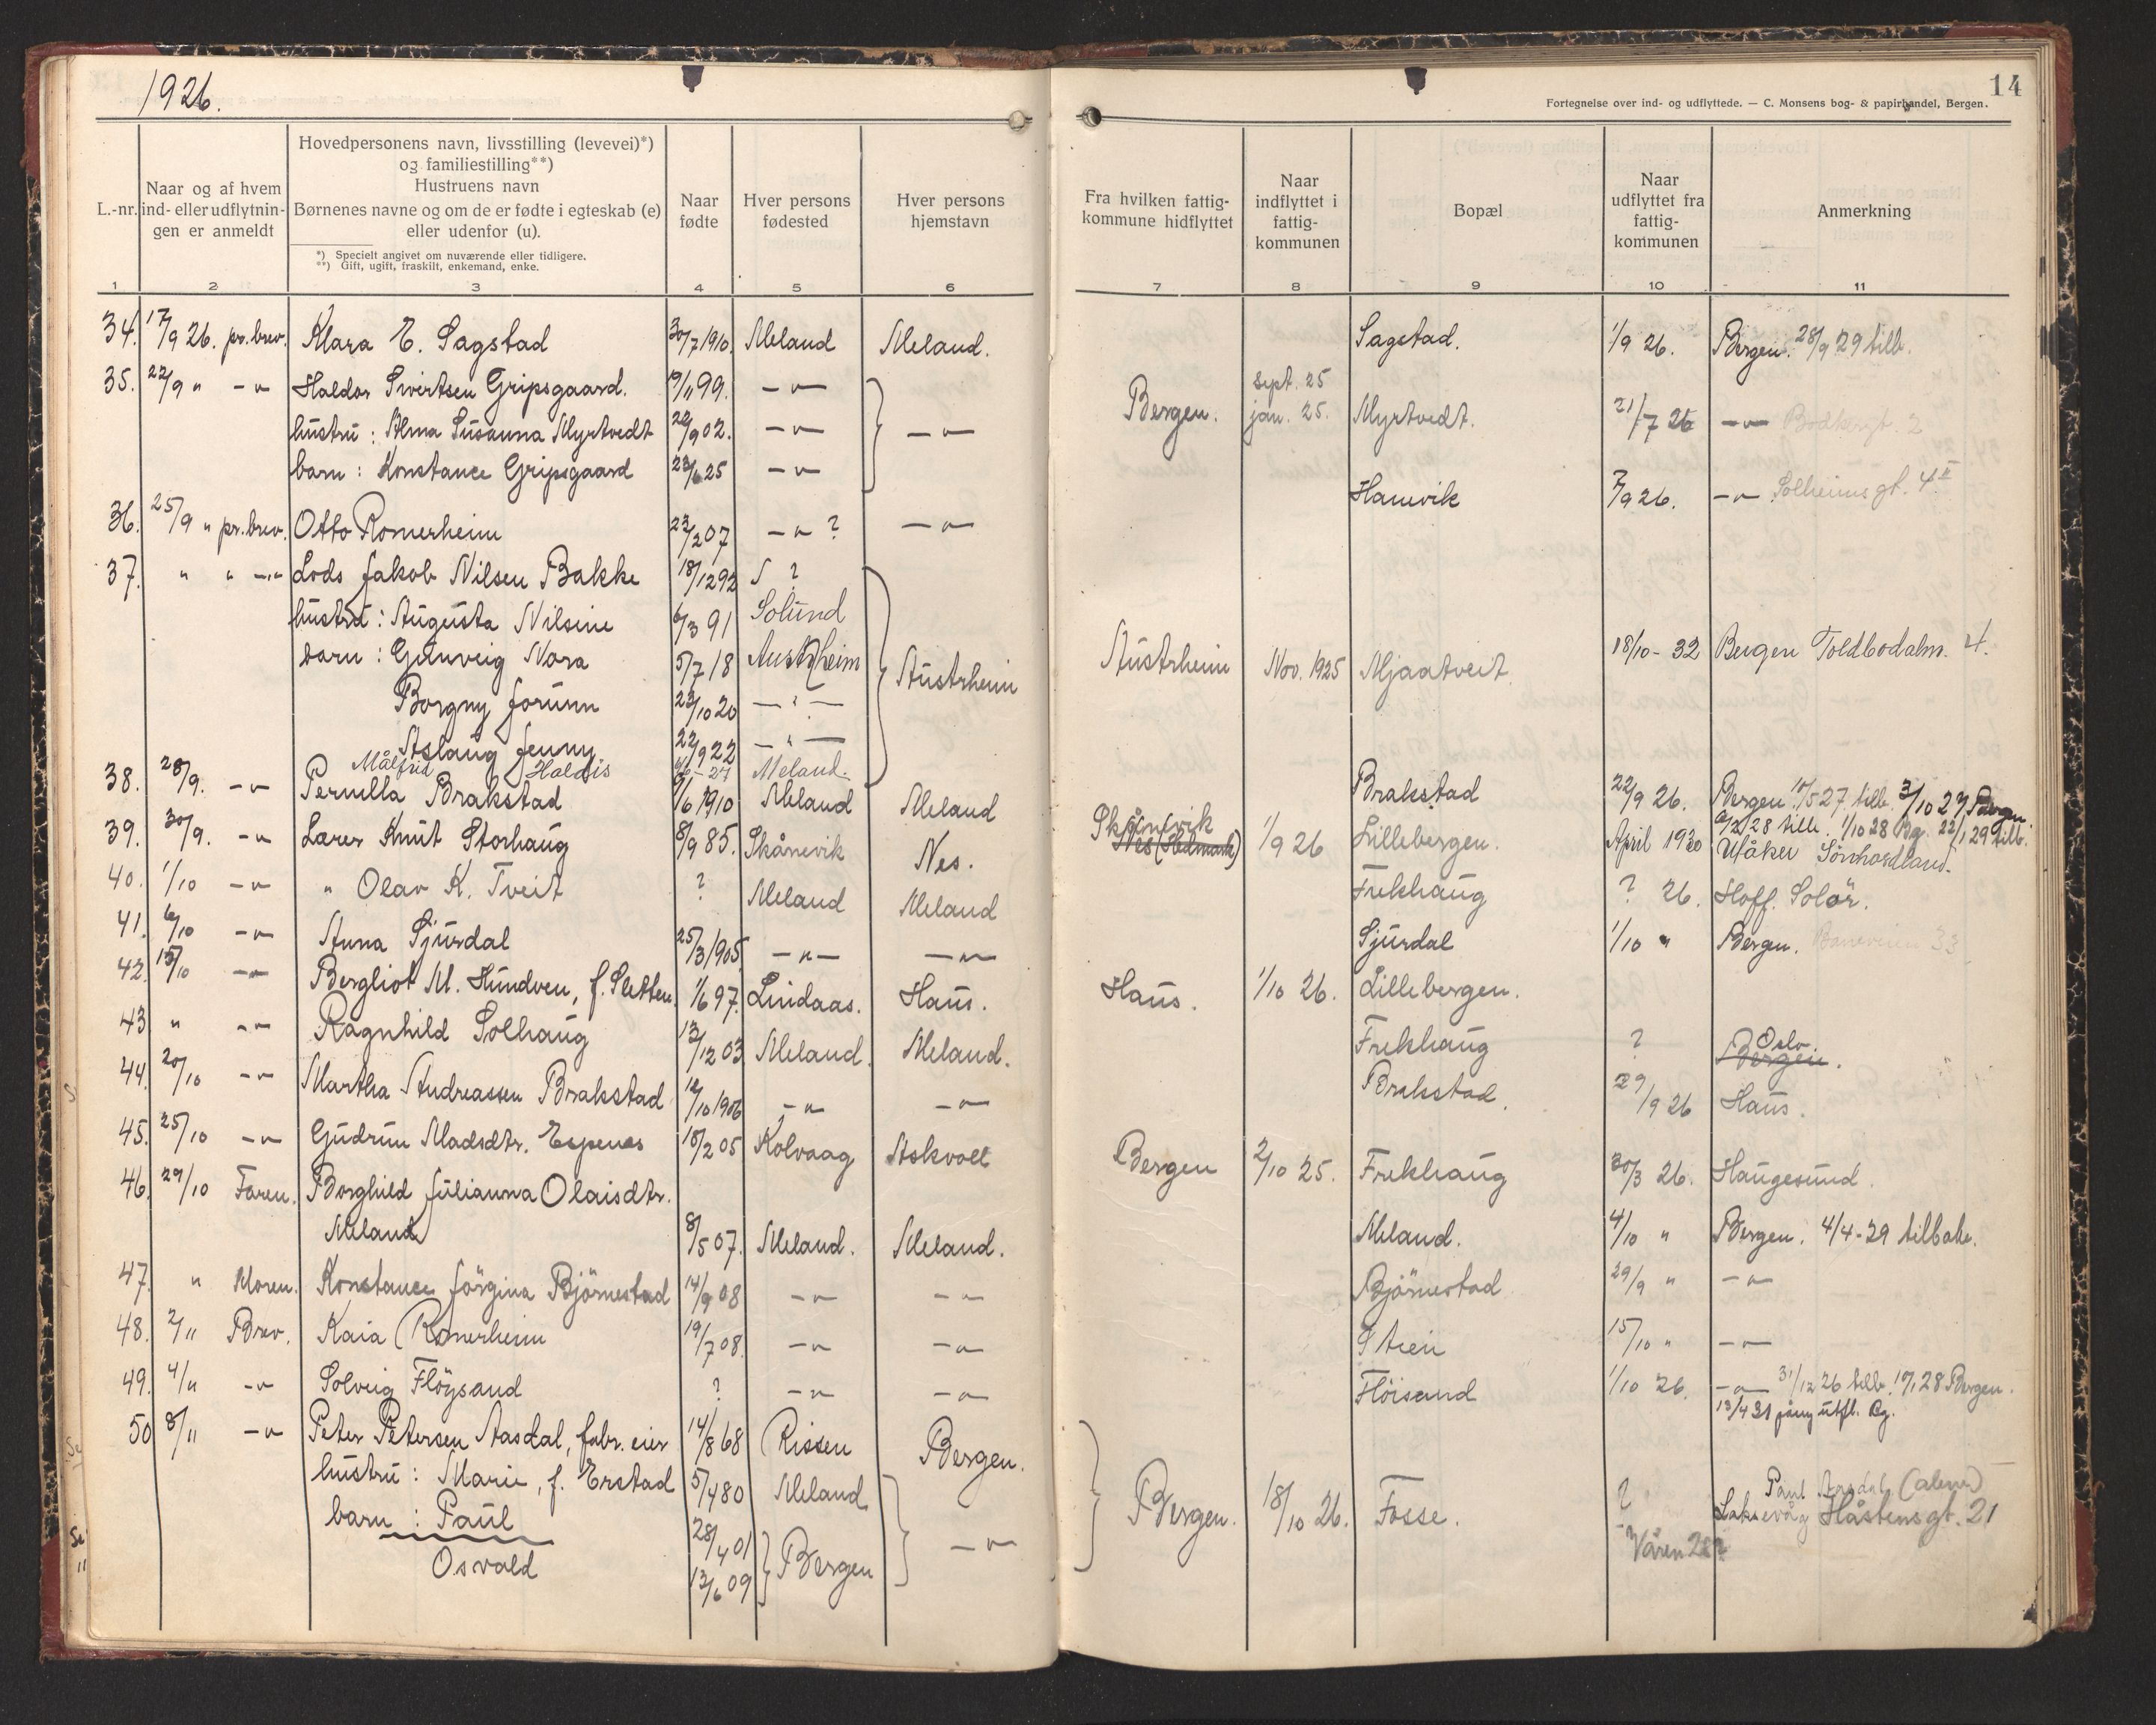 1926.
14
Fortegnelse over ind- og udflyttede. — C. Monsens bog- & papirhandel, Bergen.
L.-nr.
Naar og af hvem ind- eller udflytnin- gen er anmeldt
Hovedpersonens navn, livsstilling (levevei)*)
og familiestilling**)
Hustruens navn
Børnenes navne og om de er fødte i egteskab (e)
eller udenfor (u).
*) Specielt angivet om nuværende eller tidligere.
**) Gift, ugift, fraskilt, enkemand, enke.
Naar fødte
Hver persons fødested
Hver persons hjemstavn
Fra hvilken fattig- kommune hidflyttet
Naar indflyttet i fattig- kommunen
Bopæl
Naar udflyttet fra fattig- kommunen
Anmerkning
1 2 3 4 5 6 7 8 9 10 11
34. 17/9 26. pr. brev. Klara E. Sagstad 30/7 1910. Meland Meland. Sagstad. 1/9 26. Bergen. 28/9 29 tilb.
35. 22/9 " -"- Haldor Sivertsen Gripsgaard. 19/11 99. -"- sept. 25
hustru : Alma Susanna Myrtvedt 22/9 02. -"- -"- Bergen. jan. 25. Myrtvedt. 21/7 26 -"- 2
barn : Konstance Gripsgaard 23/6 25 -"-
Hanevik 7/9 26. -"- Solheimsgt. 4 II
36. 25/9 " pr. brev. Otto Romerheim 23/2 07 -"- ? -"-
37. " " -"- Lods Jakob Nilsen Bakke 18/12 92 ?
hustru : Augusta Nilsine 6/3 91 Solund
barn : Gunveig Nora 5/7 18 Austrheim Austrheim Austrheim Nov. 1925 Mjaatveit 18/10 - 32 Bergen Toldbodalm. 4.
Borgny Jorunn 23/10 20 -"-
Aslaug Jenny 22/9 22 -"-
Målfrid Haldis 27 Meland.
38. 28/9. -"- Pernilla Brakstad 9/6 1910 Meland Meland Brakstad 22/9 26. Bergen 27. tilb. 3/10 27 Bergen
28 tilb. 1/10 28 Bg. 22/1 29 tilb.
39. 30/9. -"- Lærer Knut Storhaug 8/9 85. Skånevik Nes. Skånevik
Nes (Hedmark) 1/9 26 Lillebergen. April 1930 Utåker Sönhordland.
40. 1/10 -"- " Olav K. Tveit ? Meland Meland Frekhaug ? 26. Hoff. Solör.
41. 6/10 -"- Anna Sjurdal 25/3 1905. -"- -"- Sjurdal 1/10 " Bergen. 33
42. 15/10 -"- Bergliot M. Hundven, f. Sletten. 1/6 97. Lindaas. Haus. Haus. 1/10 26. Lillebergen.
43 " -"- Ragnhild Solhaug 13/12 03 Meland. Meland. Frekhaug ? Oslo.
Bergen.
44. 20/10 -"- Martha Andreassen Brakstad 12/10 1906 -"- -"- Brakstad. 29/9 26 Haus.
45. 25/10 -"- Gudrun Madsdtr. Espenes 18/2 05 Kolvaag Askvoll Bergen 2/10 25. Frekhaug 30/3 26. Haugesund.
46. 29/10 Faren. Borghild Julianna Olaisdtr.
Meland 8/5 07. Meland. Meland. Meland. 4/10 " Bergen. 4/4-29 tilbake.
47. " Moren. Konstance Jörgina Björnestad 14/9 08 -"- -"- Björnestad 29/9 " -"-
48. 2/11 Brev. Kaia Romerheim 19/7 08. -"- -"- 15/10 " -"-
49. 4/11 -"- Solveig Flöysand ? -"- -"- Flöisand 1/10 26. -"- 31/12 26 tilb. 28 Bergen.
13/4 31 utfl. Bg.
50 8/11 -"- Peter Petersen Aasdal, fabr. eier 14/8 68 Rissen Bergen.
hustru : Marie, f. Erstad 5/4 80 Meland Bergen. 18/10 26. Fosse. ? Paul Aasdal (alene)
Laksevåg Håsteinsgt. 21
barn : Paul 28/4 01 Bergen -"- Våren 28?
Osvald 13/6 09